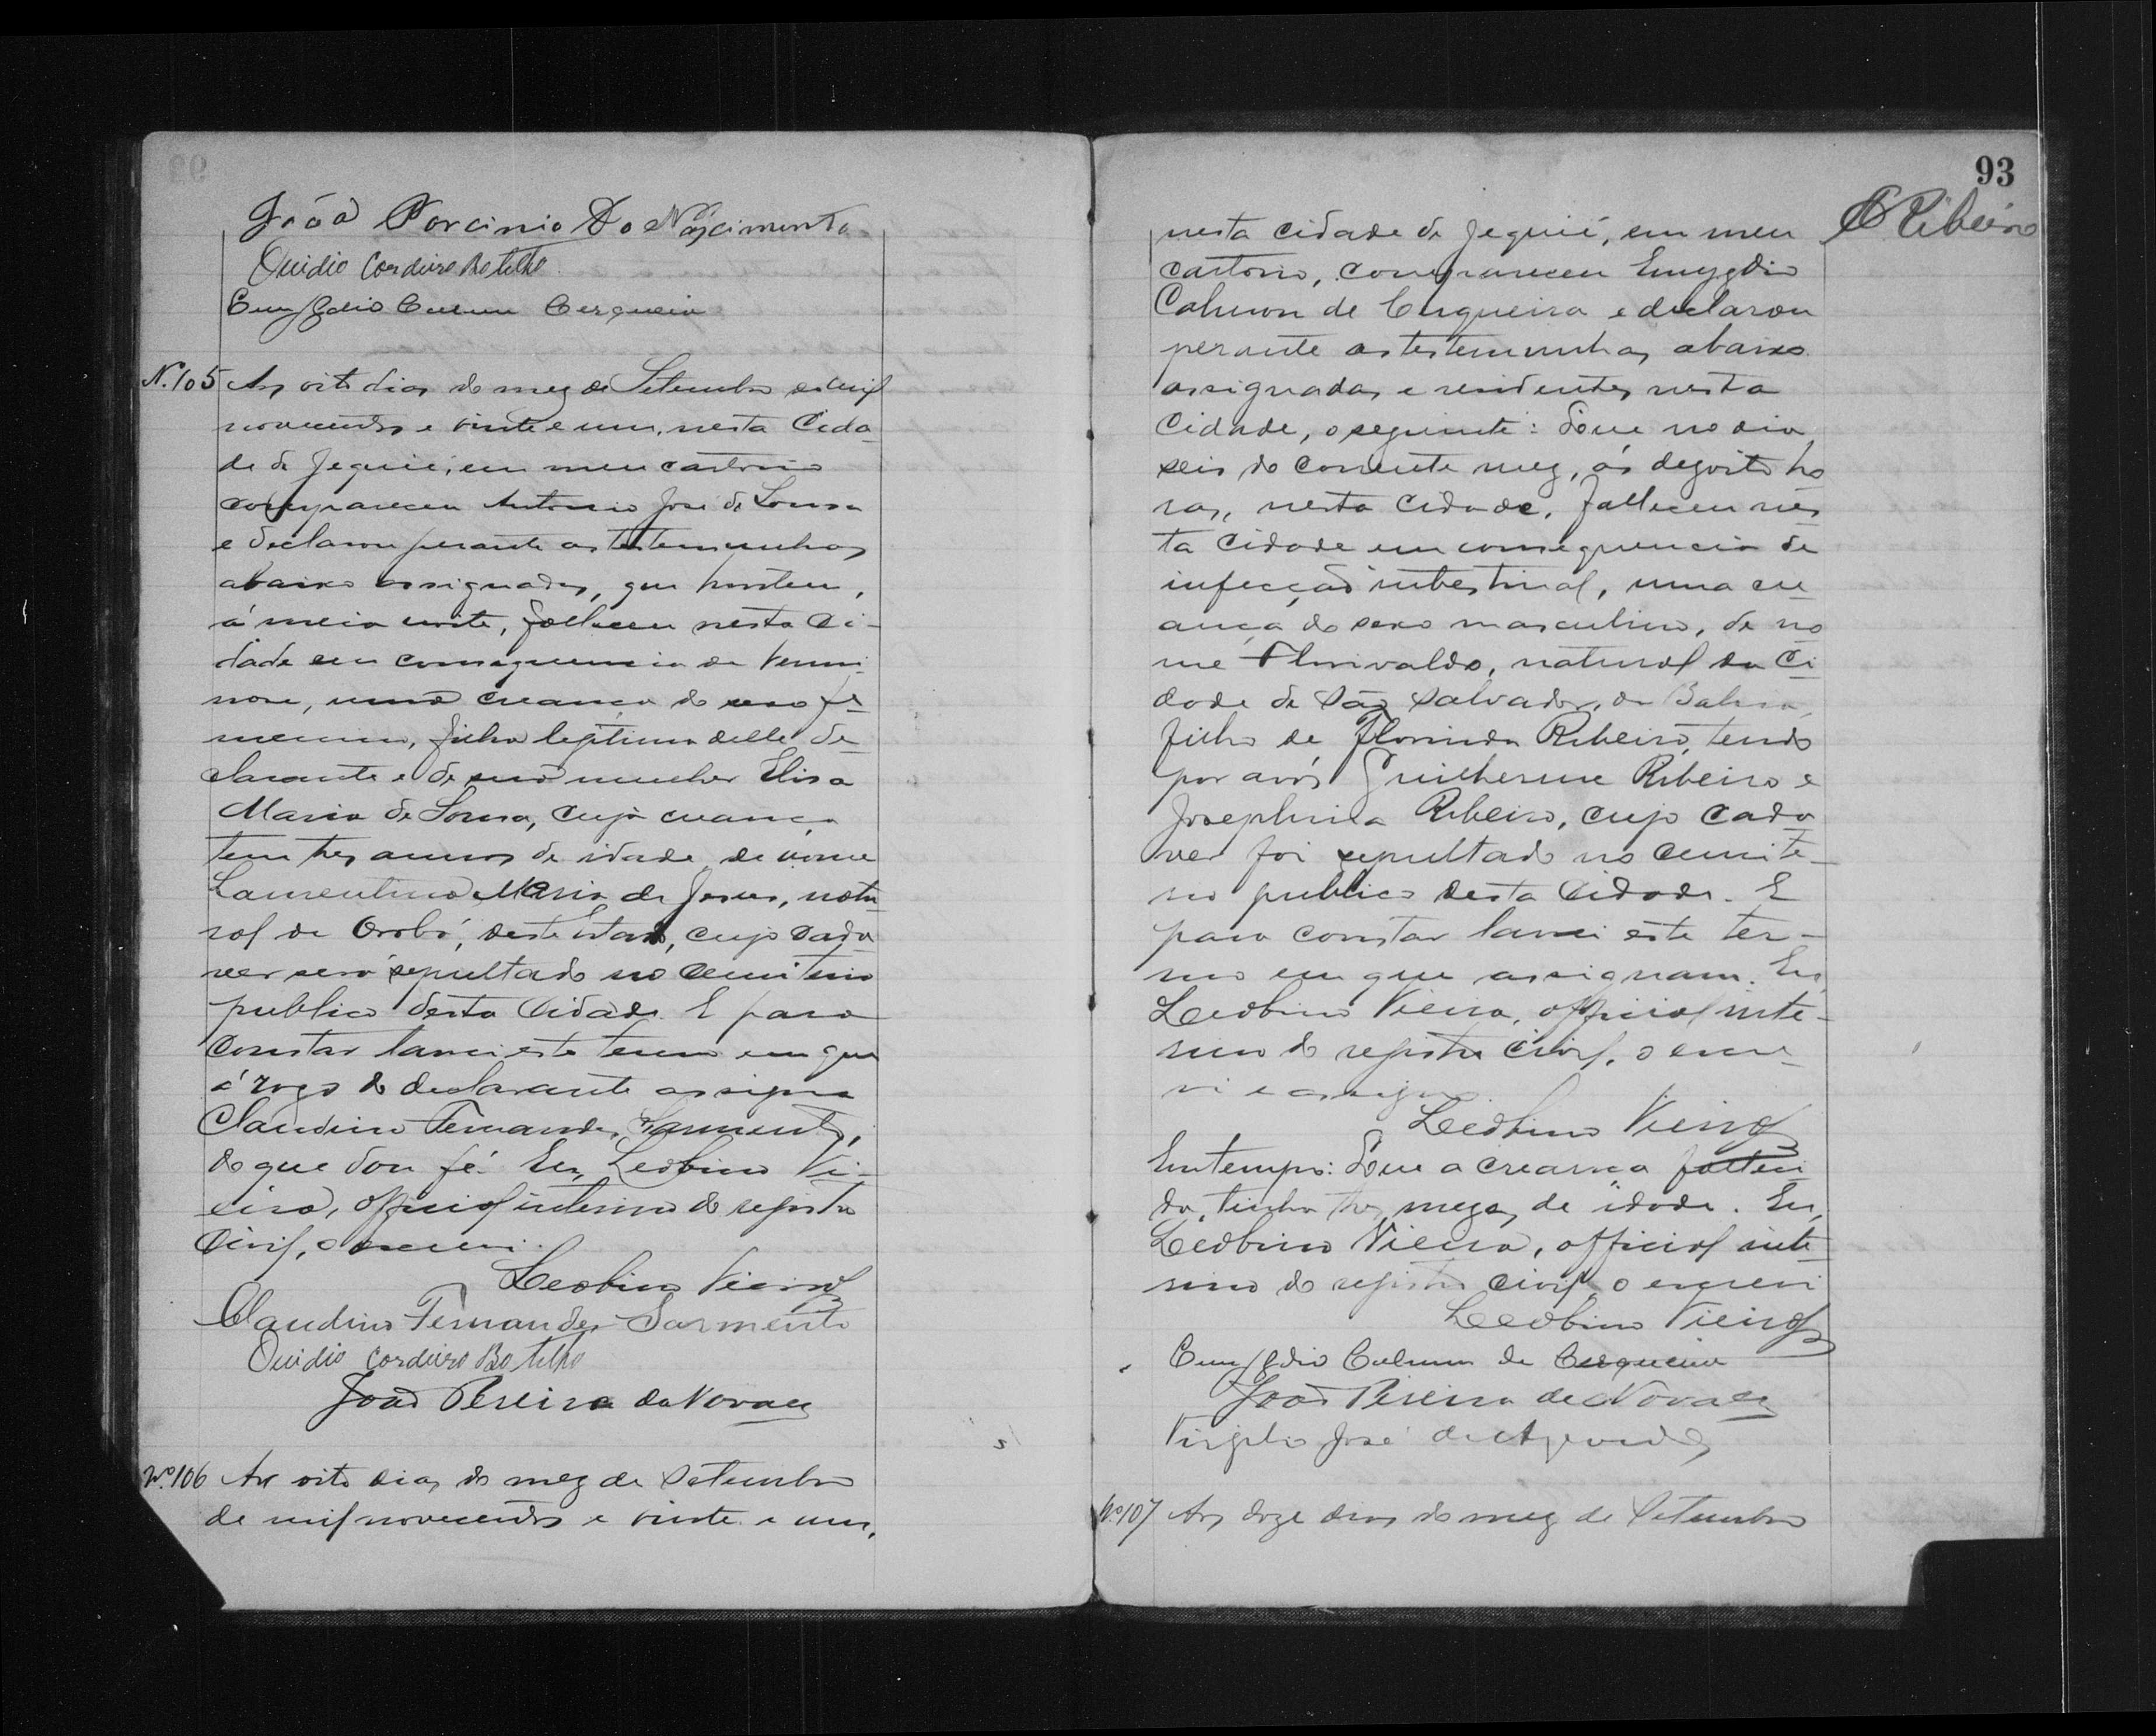 João Porcinio Do Nascimento
Ouidio Cordeiro Botelho
Emygdio Calmon Cerqueira
N. 105 Aos oito dias do mez de Setembro de mil
novecentos e vinte e um, nesta Cida-
de de Jequié, em meu cartorio
compareceu Antonio José de Sousa
e declarou perante as testemunhas
abaixo assignadas, que hontem,
á meia noite, falleceu nesta Ci-
dade em consequencia de vermi-
nose, uma creança do sexo fe-
menino, filha legitima delle de-
clarante e de sua mulher Elisa
Maria de Sousa, cuja creança
tem tres annos de idade, de nome
Laurentina Maria de Jesus, natu-
ral de Orobó, deste Estado, cujo cada-
ver será sepultado no Cemiterio
publico desta Cidade. E para
constar lavrei este termo em que
á rogo do declarante assigna
Claudino Fernandes Sarmento,
do que dou fé. Eu, Leobino Vi-
eira, official interino do registro
Civil, o escrevi.
Leobino Vieira
Claudino Fernandes Sarmento
Ouidio Cordeiro Botelho
João Pereira de Novaes
Nº. 106 Aos oito dias do mez de Setembro
de mil novecentos e vinte e um,
93
Ribeiro
nesta cidade de Jequié, em meu
cartorio, compareceu Emygdio
Calmon de Cerqueira e declarou
perante as testemunhas abaixo
assignadas e residentes nesta
Cidade, o seguinte: Que no dia
seis do corrente mez, ás dezoito ho
ras, nesta cidade, falleceu nes
ta Cidade em consequencia de
infecção intestinal, uma cre
ança do sexo masculino, de no
me Florivaldo, natural da Ci
dade de São Salvador, da Bahia,
filho de Florinda Ribeiro, tendo
por avós Guilherme Ribeiro e
Josephina Ribeiro, cujo cada
ver foi sepultado no cemite-
rio publico desta Cidade. E
para constar lavrei este ter-
mo em que assignam. Eu,
Leobino Vieira, official inte-
rino do registro civil, o escre-
vi e assigno.
Leobino Vieira
Em tempo: Que a creança falleci
da, tinha tres mezes de idade. Eu,
Leobino Vieira, official inte
rino do registro civil o escrevi
Leobino Vieira
Emygdio Calmon de Cerqueira
João Pereira de Novaes
Virgilio José de Azevedo
Nº. 107 Aos doze dias do mez de Setembro